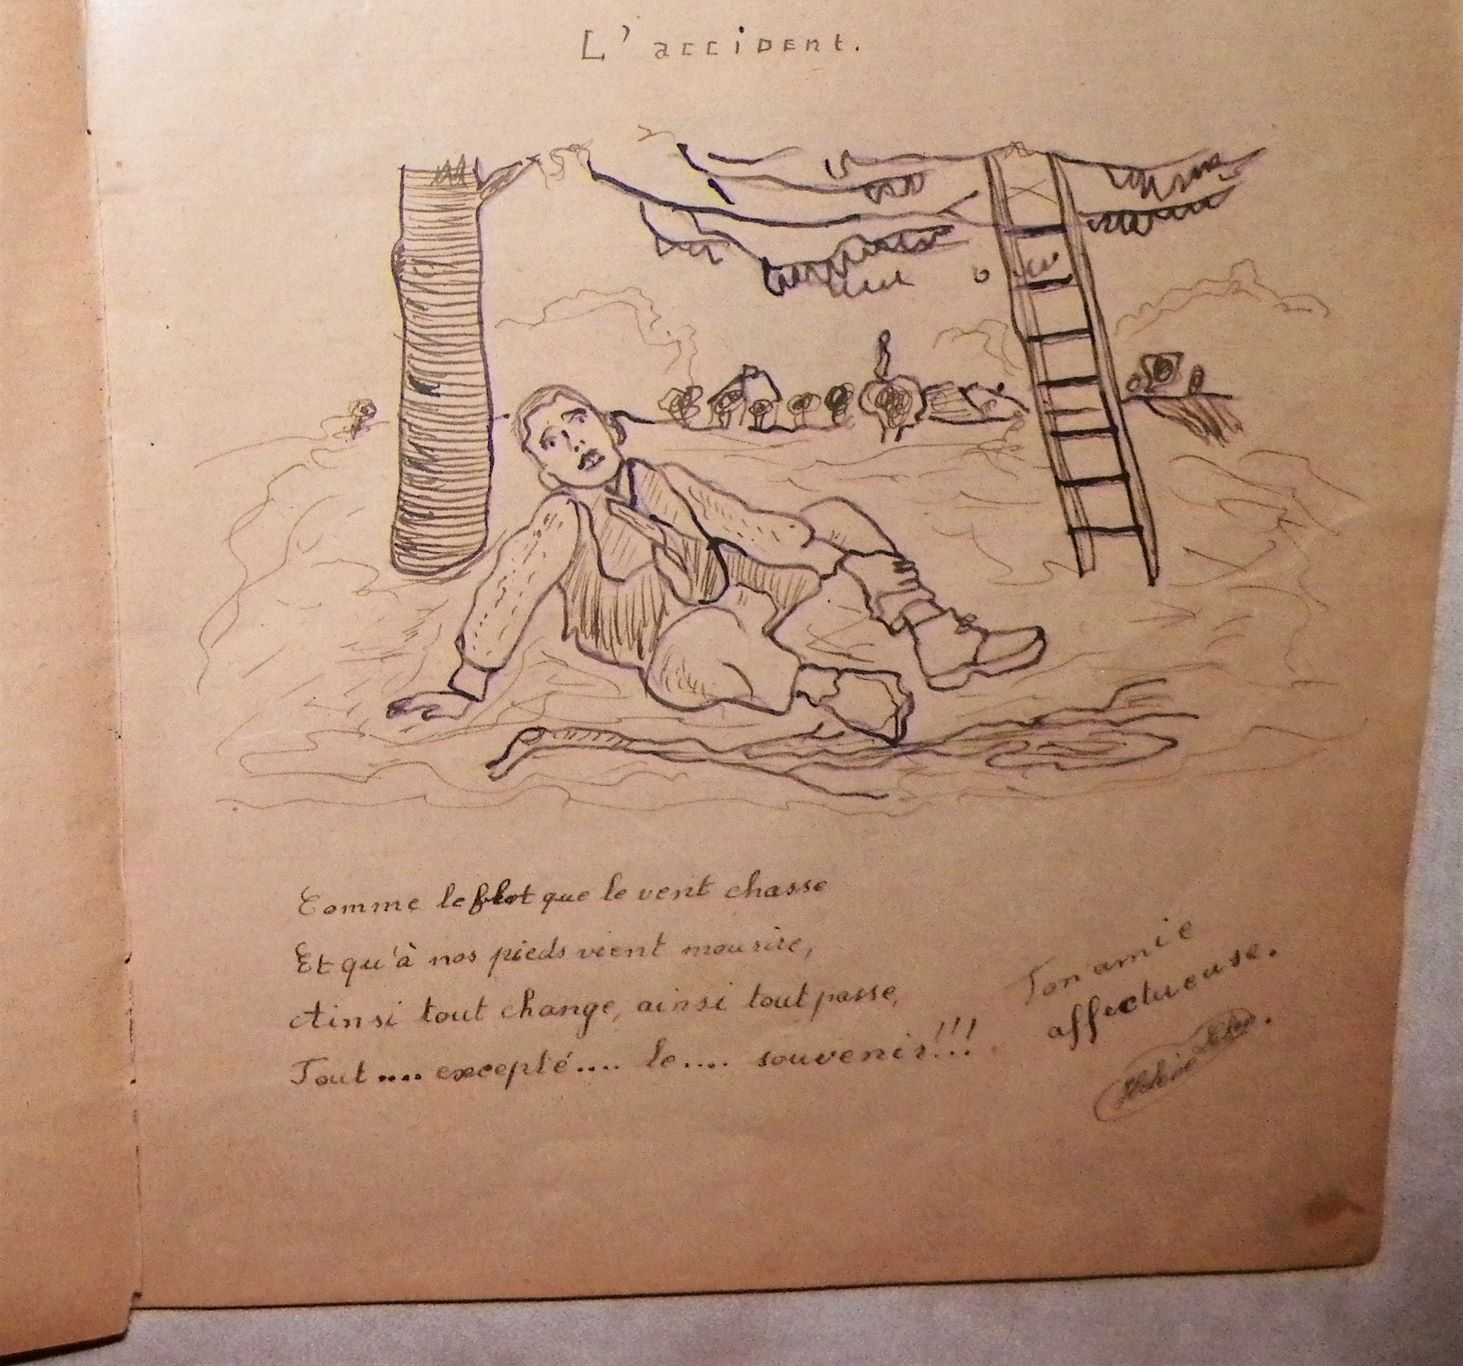 L'accident.
Comme le flot que le vent chasse
Et qu'à nos pieds vient mourire,
Ainsi tout change, ainsi tout passe,
Tout .... excepté .... le .... souvenir!!!.
Ton amie
affectueuse.